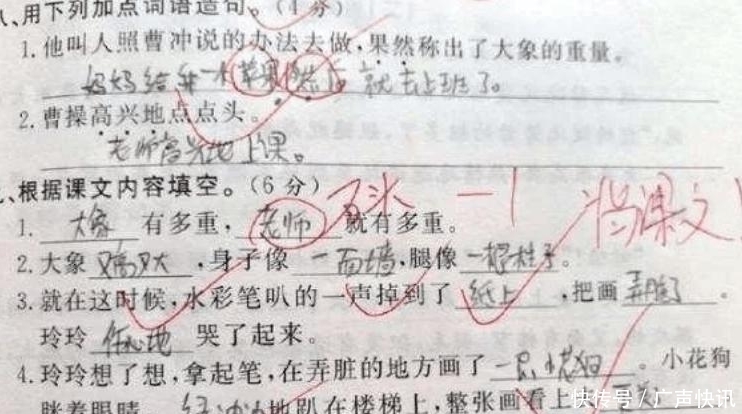 八、用下列加点词语造句。(4分)
1.他叫人照曹冲说的办法去做,果然称出了大象的重量。
妈妈给我一个苹果然后就去上班了。
2.曹操高兴地点点头。
老师高兴地上课。
、根据课文内容填空。(6分)
石头 -1 背课文!
1. 大象 有多重, 老师 就有多重。
2.大象 又高又大 ,身子像 一面墙,腿像 一根柱子。
3.就在这时候,水彩笔叭的一声掉到了 纸上 ,把画 弄脏了 。
玲玲 伤心地 哭了起来。
4.玲玲想了想,拿起笔,在弄脏的地方画了 一只小花狗 。小花狗
眯着眼睛, 地趴在楼梯上,整张画看上
快传号/广声快讯